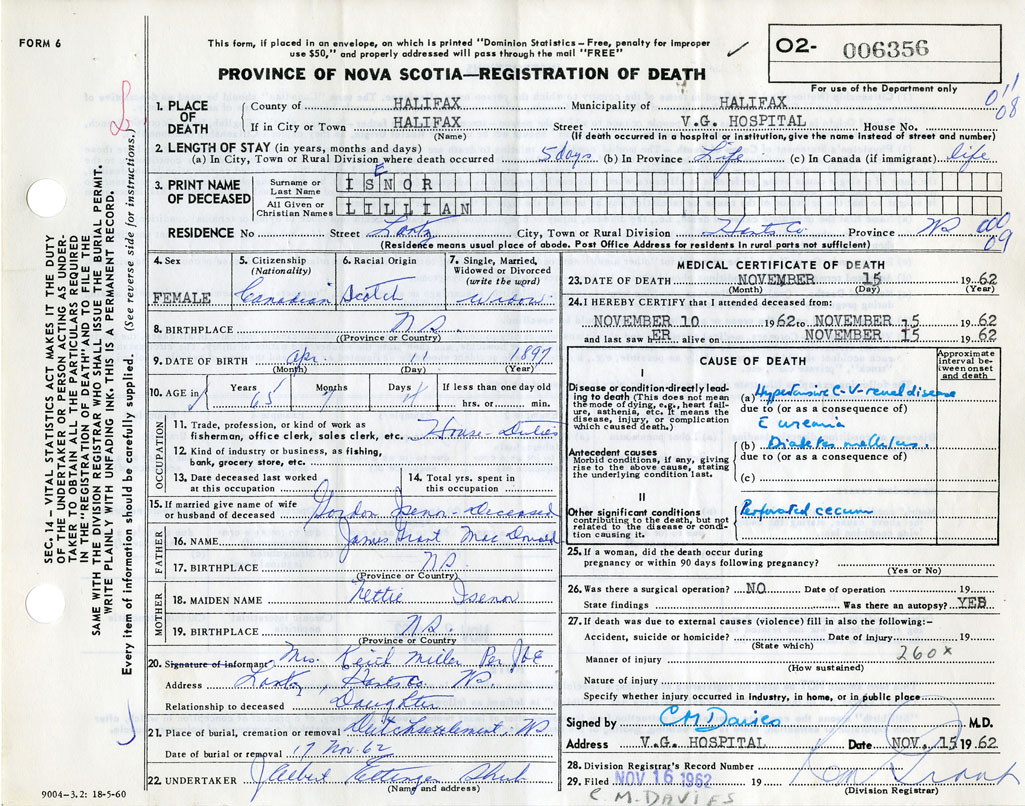 FORM 6
This form, if placed in an envelope, on which is printed "Dominion Statistics – Free, penalty for improper
use $50," and properly addressed will pass through the mail "FREE"
02- 006356
PROVINCE OF NOVA SCOTIA—REGISTRATION OF DEATH
For use of the Department only
011
08
1. PLACE OF DEATH
County of HALIFAX Municipality of HALIFAX
If in City or Town HALIFAX Street V.G. HOSPITAL House No.
(Name) (If death occurred in a hospital or institution, give the name instead of street and number)
2. LENGTH OF STAY (in years, months and days)
(a) In City, Town or Rural Division where death occurred 5 days (b) In Province Life (c) In Canada (if immigrant) life
3. PRINT NAME OF DECEASED
E
Surname or Last Name ISNOR
All Given or Christian Names LILLIAN
RESIDENCE No Street Lantz City, Town or Rural Division Hants Co. Province NS
09
(Residence means usual place of abode. Post Office Address for residents in rural parts not sufficient)
4. Sex FEMALE
5. Citizenship (Nationality) Canadian
6. Racial Origin Scotch
7. Single, Married, Widowed or Divorced (write the word) Widow
8. BIRTHPLACE N.S.
((Province or Country)
9. DATE OF BIRTH Apr. 11 1897
(Month) (Day) (Year)
10. AGE in Years 65 Months 7 Days 4 If less than one day old
hrs. or min.
OCCUPATION
11. Trade, profession, or kind of work as
fisherman, office clerk, sales clerk, etc. House-Duties
12. Kind of industry or business, as fishing,
bank, grocery store, etc.
13. Date deceased last worked at this occupation
14. Total yrs. spent in this occupation
15. If married give name of wife
or husband of deceased Gordon Isenor-Deceased
FATHER
16. NAME James Grant MacDonald
17. BIRTHPLACE N.S.
(Province or Country)
MOTHER
18. MAIDEN NAME Nettie Isenor
19. BIRTHPLACE N.S.
(Province or Country)
20. Signature of informant Mrs. Keith Miller Per
Address Lantz, Hants Co. NS.
Relationship to deceased Daughter
21. Place of burial, cremation or removal Dutch settlement-NS
Date of burial or removal 17 Nov. 62
22. UNDERTAKER Albert Ettinger Shub
(Name and address)
9004-3.2: 18-5-60
MEDICAL CERTIFICATE OF DEATH
23. DATE OF DEATH NOVEMBER 15 1962
(Month) (Day) (Year)
24. I HEREBY CERTIFY that I attended deceased from:
NOVEMBER 10 1962 to NOVEMBER 15 1962
and last saw HER alive on NOVEMBER 15 1962
CAUSE OF DEATH
Approximate interval between onset and death
I
Disease or condition-directly leading to death (This does not mean the mode of dying, e.g., heart failure, asthenia, etc. It means the disease, injury, or complication which caused death.)
(a) Hypertensive C-V-renal disease
due to (or as a consequence of)
c̄ uremia
Antecedent causes
Morbid conditions, if any, giving rise to the above cause, stating the underlying condition last.
(b) Diabetes mellitus.
due to (or as a consequence of)
(c)
II
Other significant conditions
contributing to the death, but not related to the disease or condition causing it.
Perforated cecum
25. If a woman, did the death occur during
pregnancy or within 90 days following pregnancy?
(Yes or No)
26. Was there a surgical operation? NO Date of operation 19
State findings Was there an autopsy? YES
27. If death was due to external causes (violence) fill in also the following:-
Accident, suicide or homicide? Date of injury 19
(State which)
260x
Manner of injury
(How sustained)
Nature of injury
Specify whether injury occurred in industry, in home, or in public place
Signed by CM Davies M.D.
Address V.G. HOSPITAL Date NOV. 15 1962
28. Division Registrar's Record Number
29. Filed NOV 16 1962 19
(Division Registrar)
C. M. DAVIES
SEC. 14 – VITAL STATISTICS ACT MAKES IT THE DUTY
OF THE UNDERTAKER OR PERSON ACTING AS UNDER-
TAKER TO OBTAIN ALL THE PARTICULARS REQUIRED
IN THE "REGISTRATION OF DEATH" AND TO FILE THE
SAME WITH THE DIVISION REGISTRAR WHO SHALL ISSUE THE BURIAL PERMIT.
WRITE PLAINLY WITH UNFADING INK. THIS IS A PERMANENT RECORD.
Every item of information should be carefully supplied. (See reverse side for instructions.)